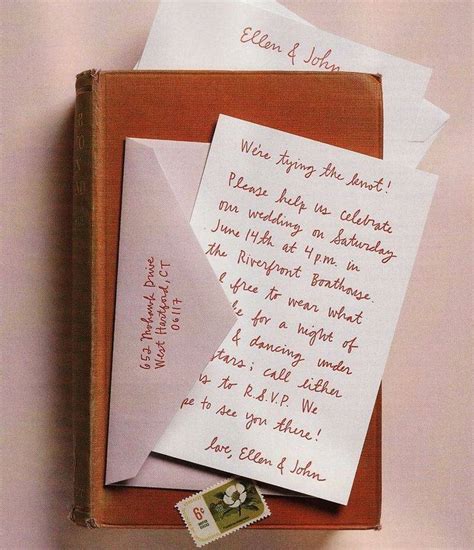 Ellen & John
We're tying the knot!
Please help us celebrate
our wedding on Saturday
June 14th at 4 p.m. in
the Riverfront Boathouse.
l free to wear what
le for a night of
& dancing under
stars; call either
us to R.S.V.P. We
pe to see you there!
love, Ellen & John
652 Mohawk Drive
West Hartford, CT
06117
6¢